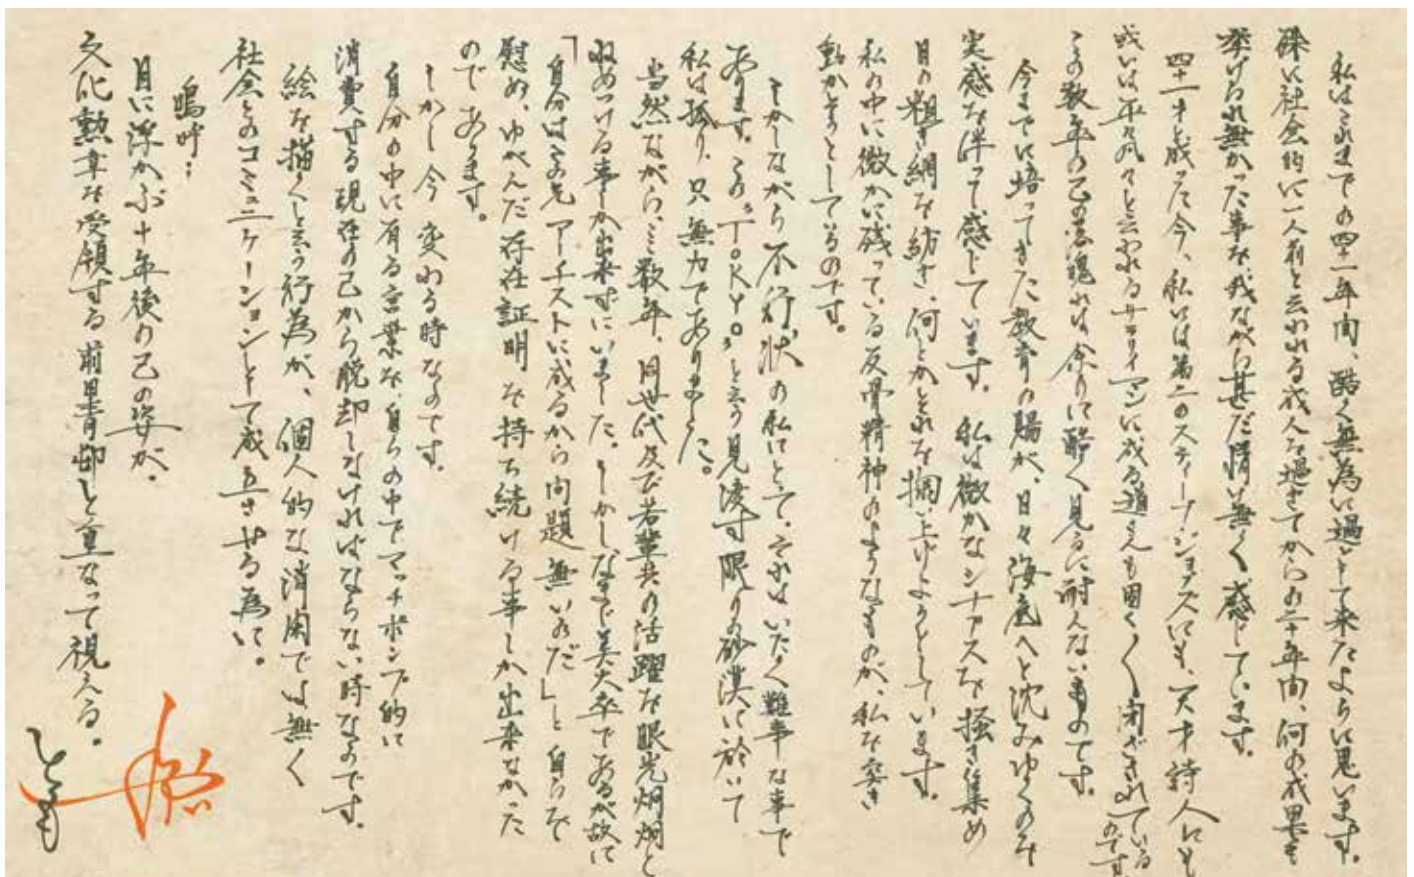 私はこれまでの四十一年間、酷く無為に過ごして来たように思います。
殊に社会的に一人前と云われる成人を過ぎてからの二十年間、何の成果も
挙げられ無かった事を我ながら甚だ情け無く感じています。
四十一才と成った今、私には第二のスティーブ・ジョブズにも、天才詩人にも
或いは平々凡々と云われるサラリイマンに成る道さえも固く〱閉ざされているのです。
この数年の己の惡魂れは余りに酷く見るに耐えないものです。
今までに培ってきた教育の賜が、日々海底へと沈みゆくのを
実感を伴って感じています。私は微かなシナプスを掻き集め
目の粗き網を紡ぎ、何とかそれを掬い上げようとしています。
私の中に微かに残っている反骨精神のようなものが、私を突き
動かそうとしているのです。
しかしながら不行状の私にとって、それはいたく難事な事で
あります。この〝TOKYO〟と云う見渡す限りの砂漠に於いて
私は孤り、只無力でありました。
当然ながら、ここ数年、同世代及び若輩共の活躍を眼光炯炯と
収めつける事しか出来ずにいました。しかしながら美大卒であるが故に
「自分はこの先アーチストに成るから問題無いのだ」と自らを
慰め、ゆがんだ存在証明を持ち続ける事しか出来なかった
のであります。
しかし今変わる時なのです。
自分の中に有る言葉を、自らの中でマッチポンプ的に
消費する現在の己から脱却しなければならない時なのです。
絵を描くと云う行為が、個人的な消閑では無く
社会とのコミュニケーションとして成立させる為に。
嗚呼…
目に浮かぶ十年後の己の姿が、
文化勲章を受領する前田青邨と重なって視える。